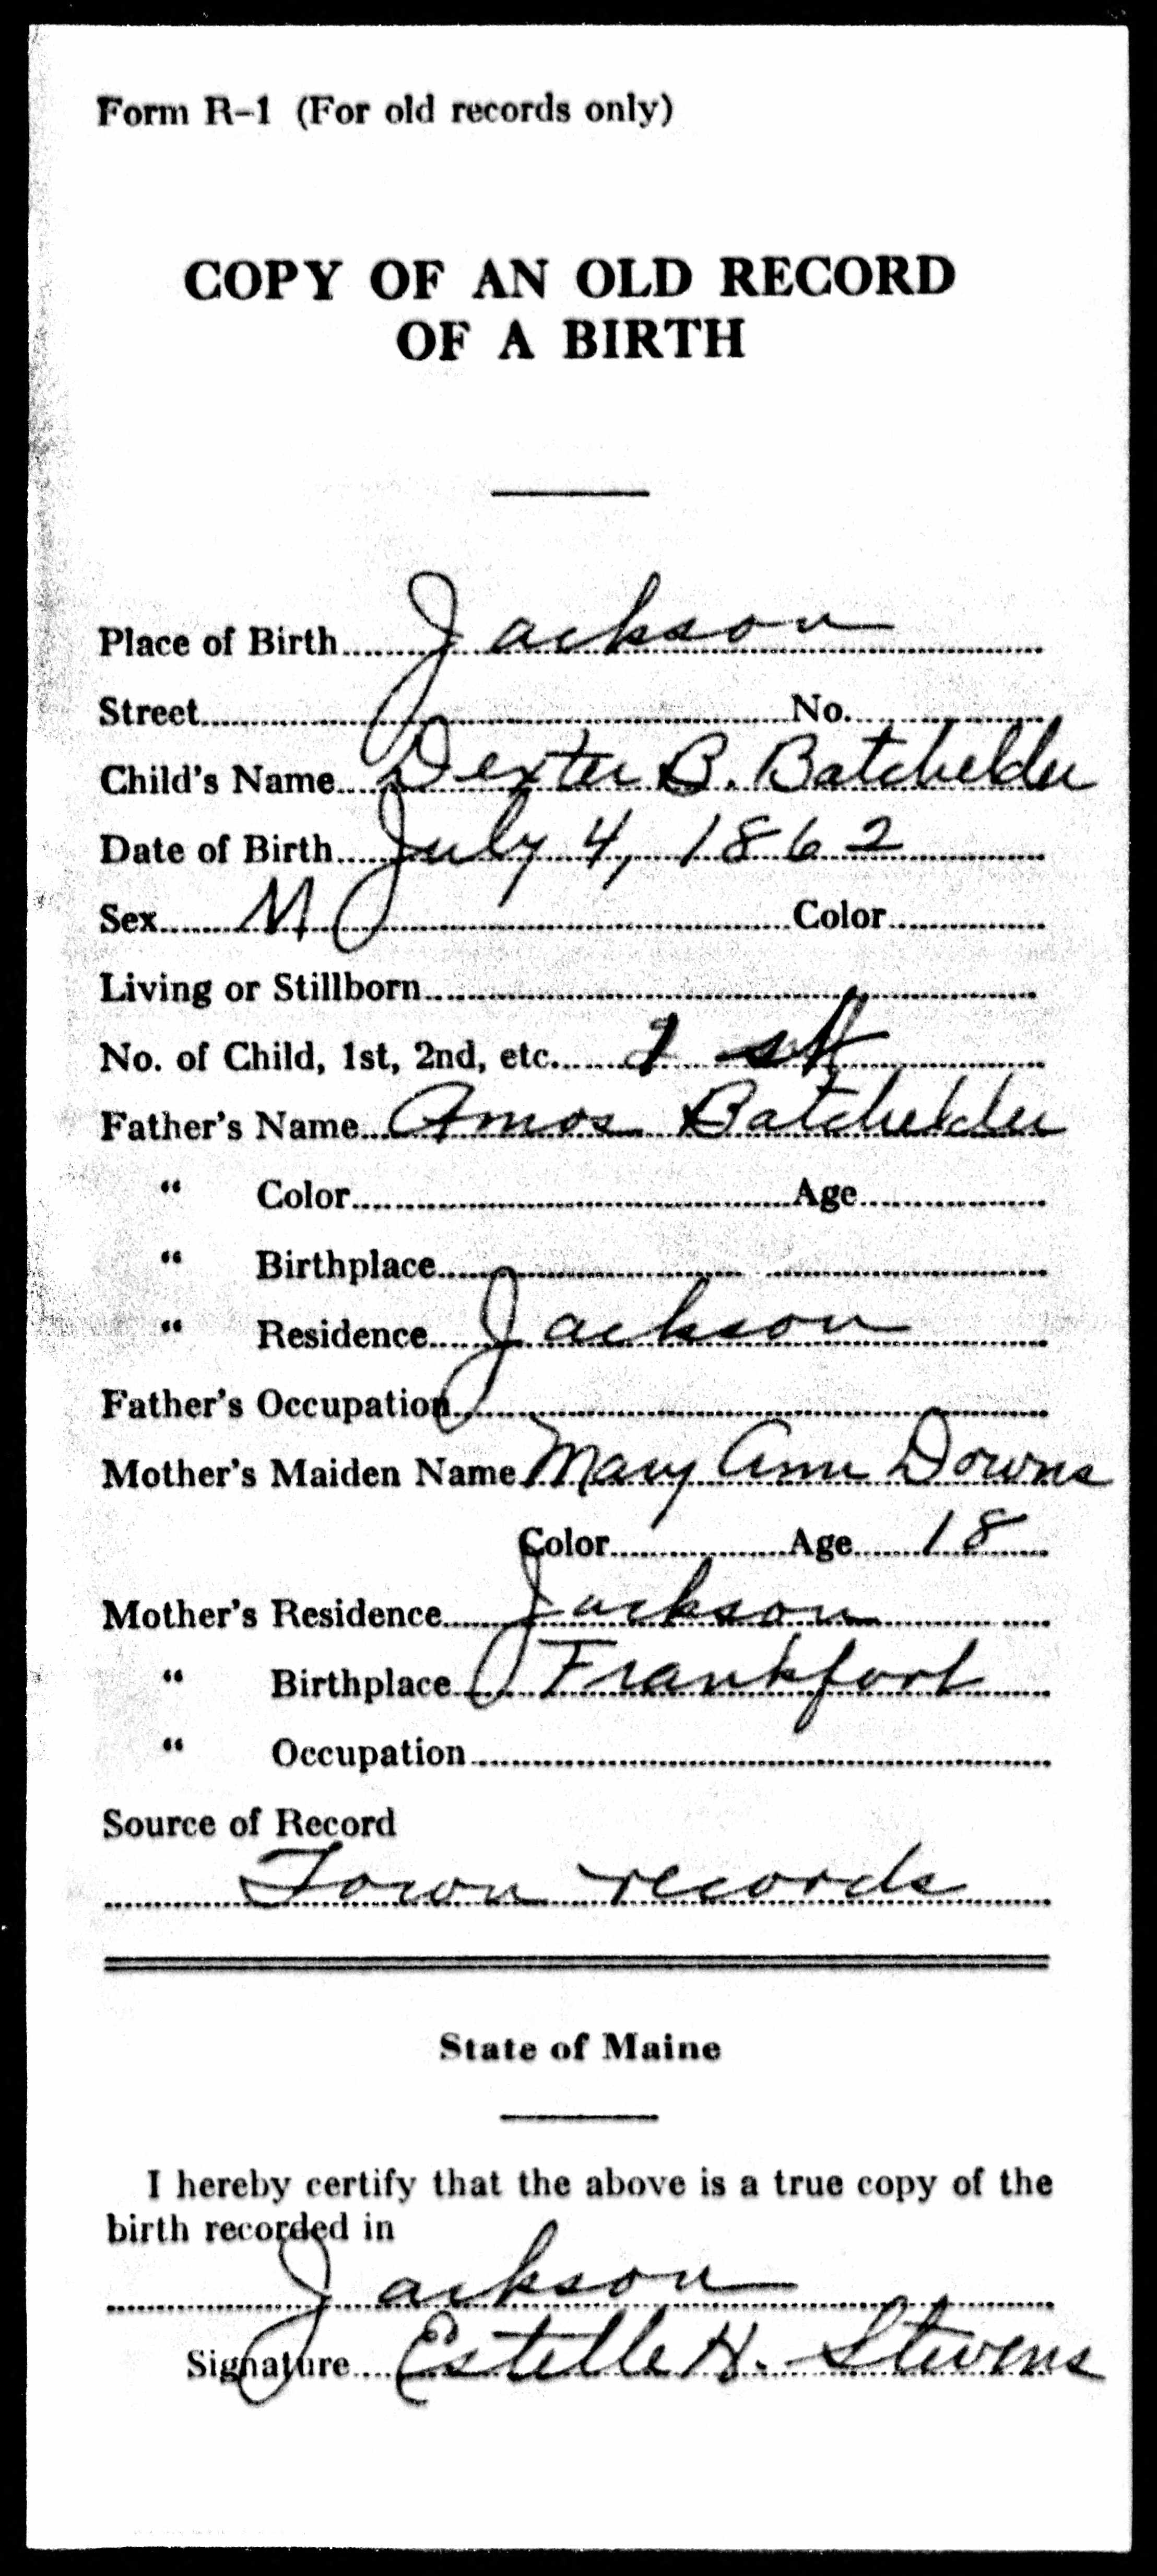 Form R-1 (For old records only)
COPY OF AN OLD RECORD
OF A BIRTH
Place of Birth Jackson
Street No.
Child's Name Dexter B. Batchelder
Date of Birth July 4, 1862
Sex M Color
Living or Stillborn
No. of Child, 1st, 2nd, etc. 1 st
Father's Name Amos Batchelder
" Color Age
" Birthplace
" Residence Jackson
Father's Occupation
Mother's Maiden Name Mary Ann Downs
Color Age 18
Mother's Residence Jackson
" Birthplace Frankfort
" Occupation
Source of Record
Town records
State of Maine
I hereby certify that the above is a true copy of the
birth recorded in
Jackson
Signature Estelle H. Stevens